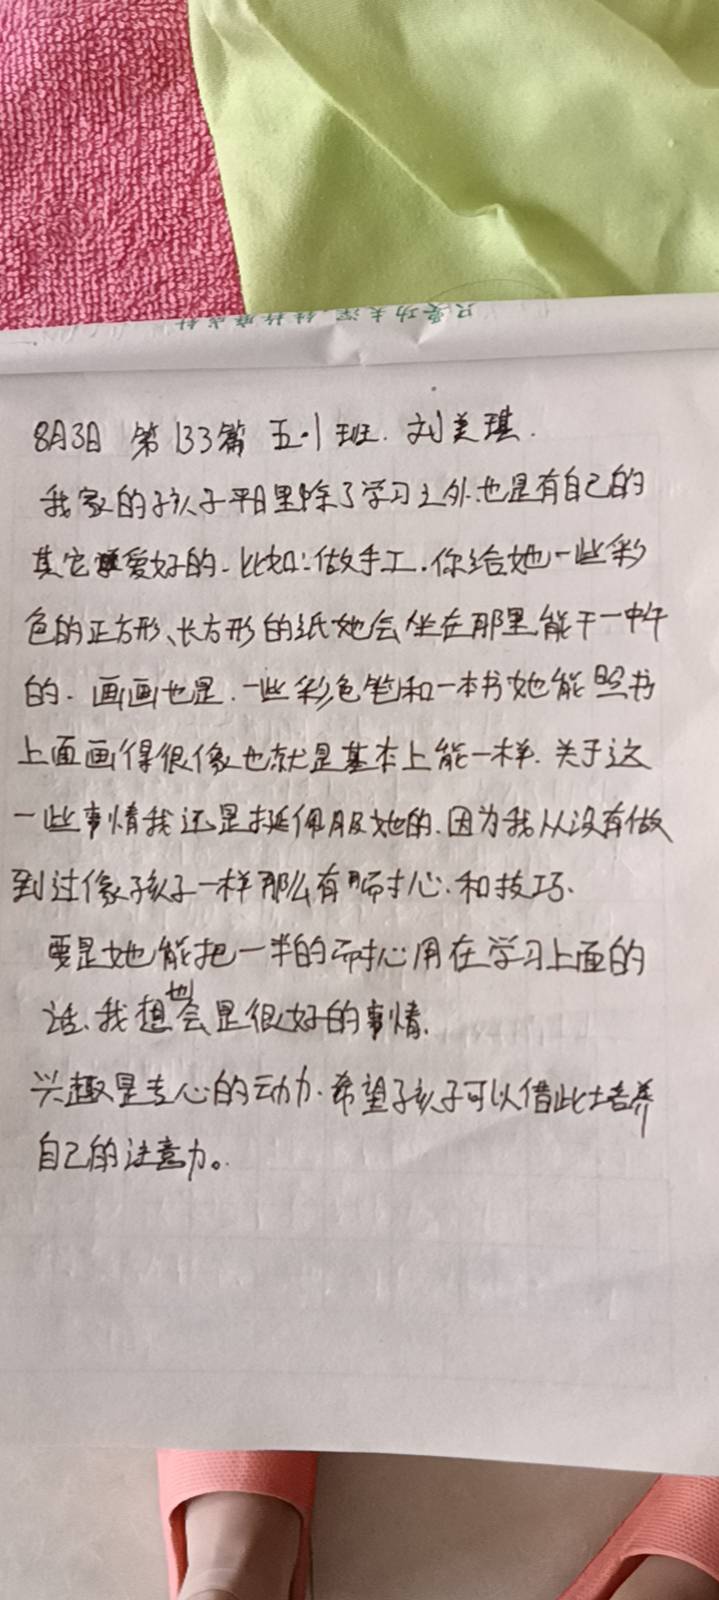 只要功夫深,铁杵磨成针
8月3日 第133篇 五·1班. 刘美琪.
我家的孩子平日里除了学习之外.也是有自己的
其它爱好的.比如:做手工.你给她一些彩
色的正方形、长方形的纸她会坐在那里能干一中午
的.画画也是.一些彩色笔和一本书她能照书
上面画得很像也就是基本上能一样.关于这
一些事情我还是挺佩服她的.因为我从没有做
到过像孩子一样那么有耐心.和技巧.
要是她能把一半的耐心用在学习上面的
话.我想也会是很好的事情.
兴趣是专心的动力.希望孩子可以借此培养
自己的注意力。